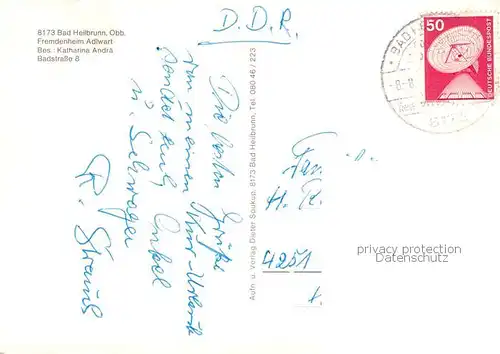 8173 Bad Heilbrunn, Obb.
Fremdenheim Adlwart
Bes.: Katharina Andrä
Badstraße 8
D.D.R.
Die besten Grüße
von meinem Kur-Urlaub
sendet euch Onkel
u. Schwager
R. Strauß
Aufn. u. Verlag Dieter Spukup, 8173 Bad Heilbrunn, Tel. 080 46 / 223
50
DEUTSCHE BUNDESPOST
BAD
Fam.
H. R.
4251
privacy protection
Datenschutz